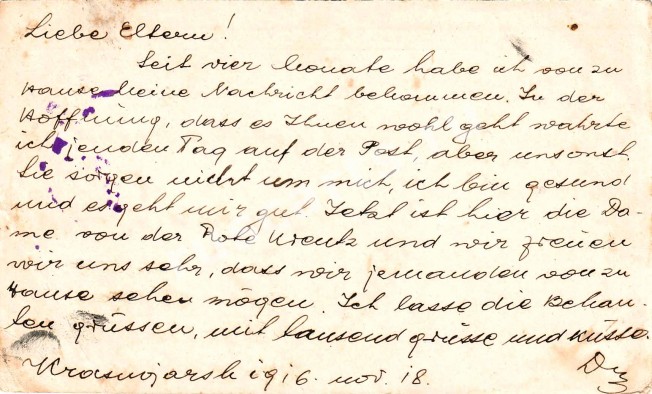 Liebe Eltern!
Seit vier Monate habe ich von zu
Hause keine Nachricht bekommen. In der
Hoffnung, dass es Ihnen wohl geht wahrte
ich jenden Tag auf der Post, aber unsonst.
Sie sorgen nicht um mich, ich bin gesund
und es geht mir gut. Jetzt ist hier die Da-
me von der Rote Kreutz und wir freuen
wir uns sehr, dass wir jemanden von zu
Hause sehen mögen. Ich lasse die Bekan-
ten grüssen, mit tausend grüsse und küsse.
Krasnojarsk 1916. nov. 18.